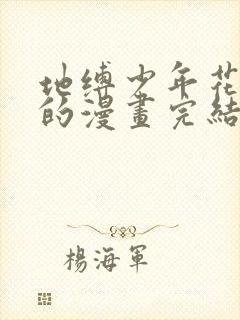 地缚少年花
的漫畫完結
楊海軍